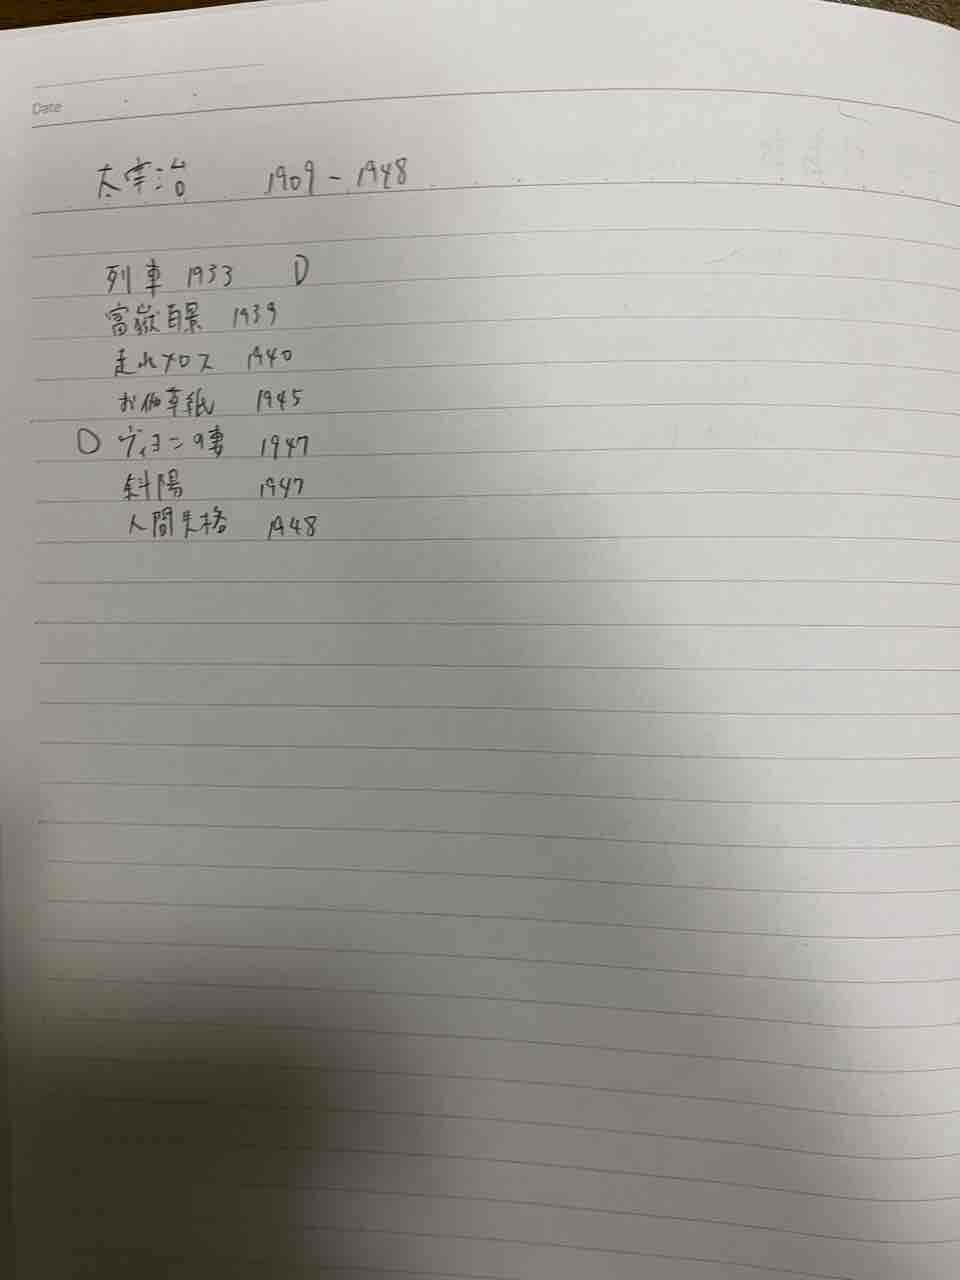 Date
太宰治 1909-1948
列車 1933 D
富嶽百景 1939
走れメロス 1940
お伽草紙 1945
○ ヴィヨンの妻 1947
斜陽 1947
人間失格 1948